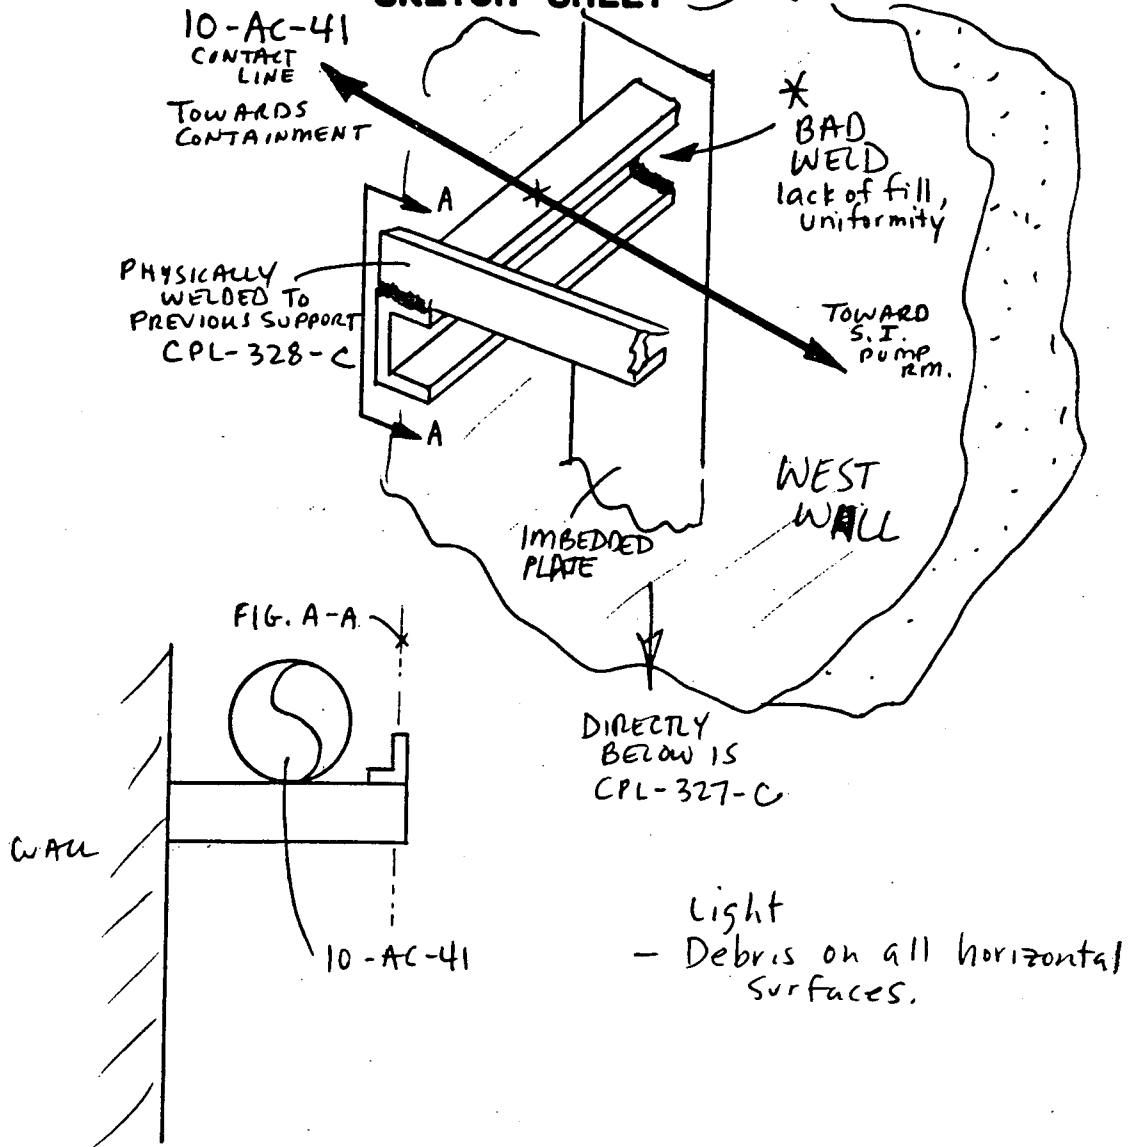 SKETCH SHEET
10-AC-41
CONTACT
LINE
TOWARDS
CONTAINMENT
*
BAD
WELD
lack of fill,
uniformity
A
PHYSICALLY
WELDED TO
PREVIOUS SUPPORT
CPL-328-C
TOWARD
S.I.
PUMP
RM.
A
WEST
WALL
IMBEDDED
PLATE
FIG. A-A
DIRECTLY
BELOW IS
CPL-327-C
WALL
10-AC-41
Light
- Debris on all horizontal
surfaces.